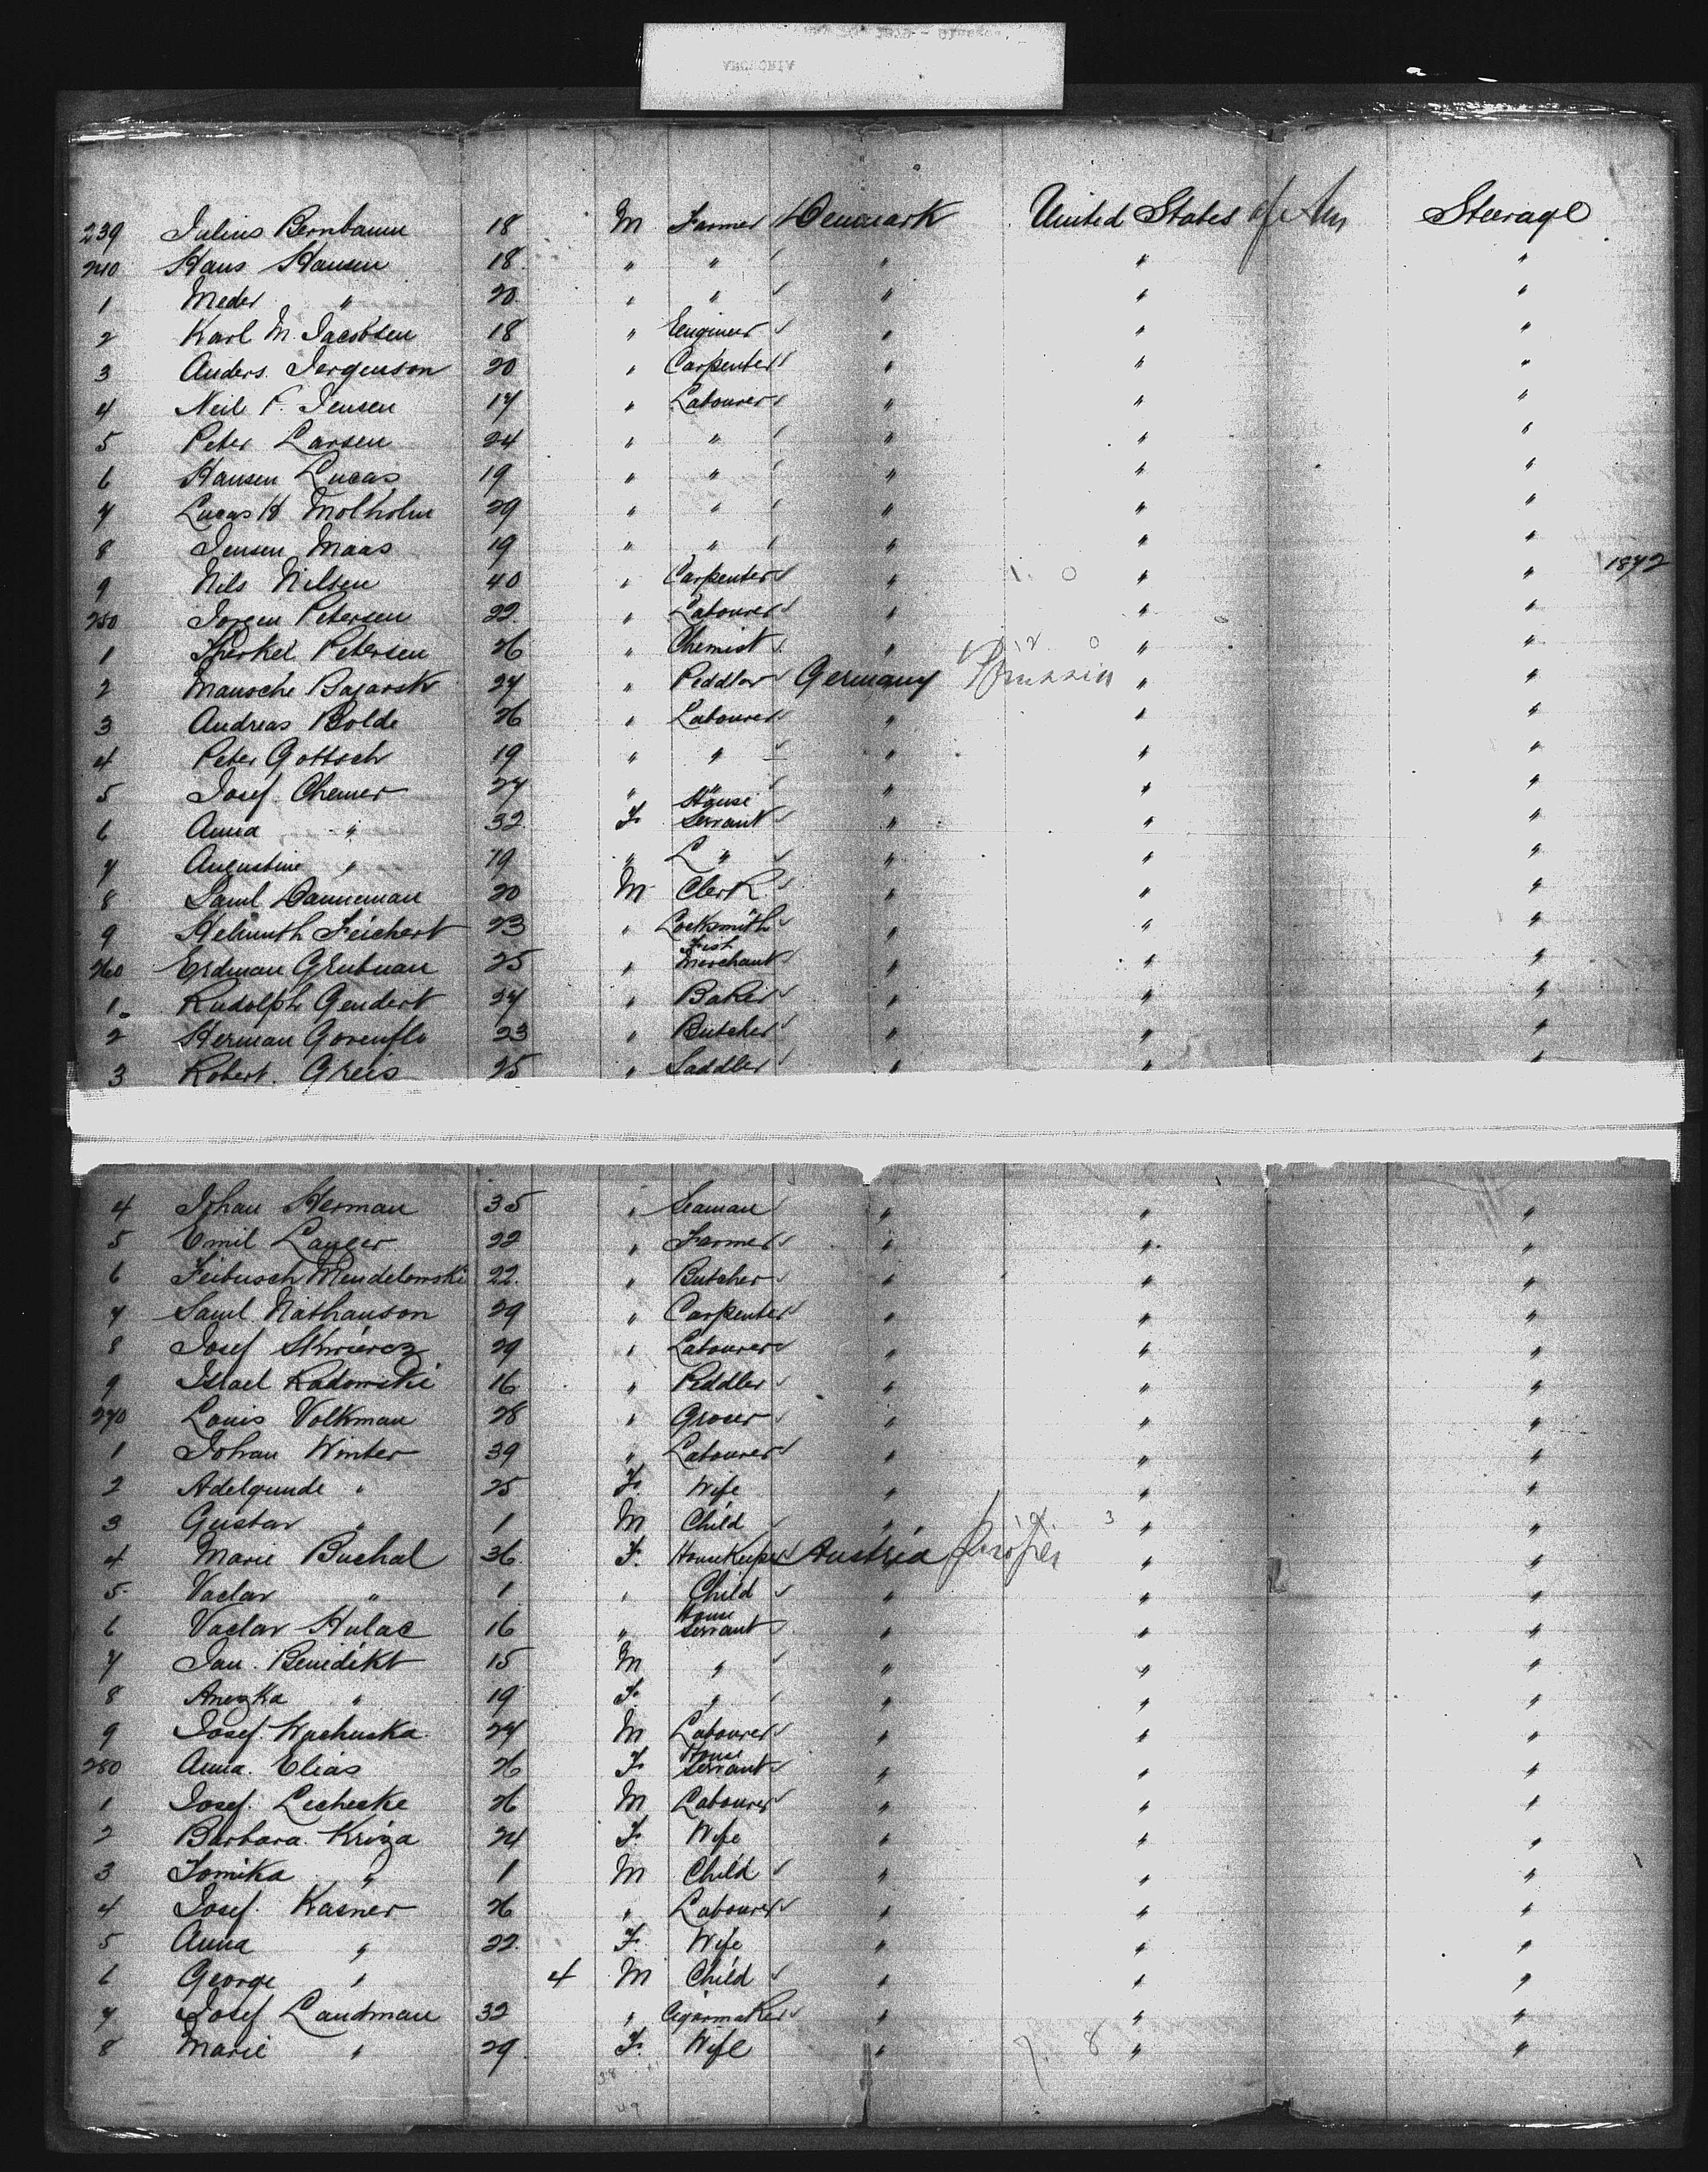 239 Julius Bernbaum 18 M Farmer Denmark United States of Am Steerage
240 Hans Hansen 18 " " " " "
1 Meder " 20 " " " " "
2 Karl M. Jacobsen 18 " Engineer " " "
3 Anders. Jergenson 20 " Carpenter " " "
4 Neil P. Jensen 17 " Labourer " " "
5 Peter Larsen 24 " " " " "
6 Hansen Lucas 19 " " " " "
7 Lucas H Molholm 29 " " " " "
8 Jensen Maas 19 " " " " "
9 Nils Nilsen 40 " Carpenter " " " 1872
250 Jorgen Petersen 22 " Labourer " " "
1 Petersen 26 " Chemist " " "
2 Mausche Bajarsk 27 " Peddlar Germany Prussia " "
3 Andreas Bolde 26 " Labourer " " "
4 Peter Gottsch 19 " " " " "
5 Josef Chemer 27 " " " " "
6 Anna " 32 F. House Servant " " "
7 Augustine " 19 " " " " "
8 Saml Danneman 20 M Clerk " " "
9 Helmuth Feichert 23 " Locksmith " " "
260 Erdman Grubnau 25 " Fish Merchant " " "
1 Rudolph Gendert 27 " Baker " " "
2 Herman Gorenflo 23 " Butcher " " "
3 Robert. Greis 25 " Saddler " " "
4 Johan Herman 35 " Seaman " " "
5 Emil Langer 22 " Farmer " " "
6 Feibusch Mendelowski 22. " Butcher " " "
7 Saml Nathanson 29 " Carpenter " " "
8 Josef Skwiercz 29 " Labourer " " "
9 Israel Radowski 16 " Peddler " " "
270 Louis Volkman 28 " Grocer " " "
1 Johan Winter 39 " Labourer " " "
2 Adelgunde " 25 F. Wife " " "
3 Gustav " 1 M Child " " "
4 Marie Buchal 36 F. Housekeeper Austria proper " "
5 Vaclav " 1 " Child " " "
6 Vaclav Hulac 16 " House Servant " " "
7 Jan. Benedikt 15 M " " " "
8 Anezka " 19 F. " " " "
9 Josef. Wychuska 27 M Labourer " " "
280 Anna. Elias 26 F. House Servant " " "
1 Josef. Lechecke 26 M Labourer " " "
2 Barbara Kriza 24 F. Wife " " "
3 Tomika " 1 M Child " " "
4 Josef. Kasner 26 " Labourer " " "
5 Anna " 22. F. Wife " " "
6 George " 4 M Child " " "
7 Josef Landman 32 " Cigarmaker " " "
8 Marie " 29 F. Wife " " "